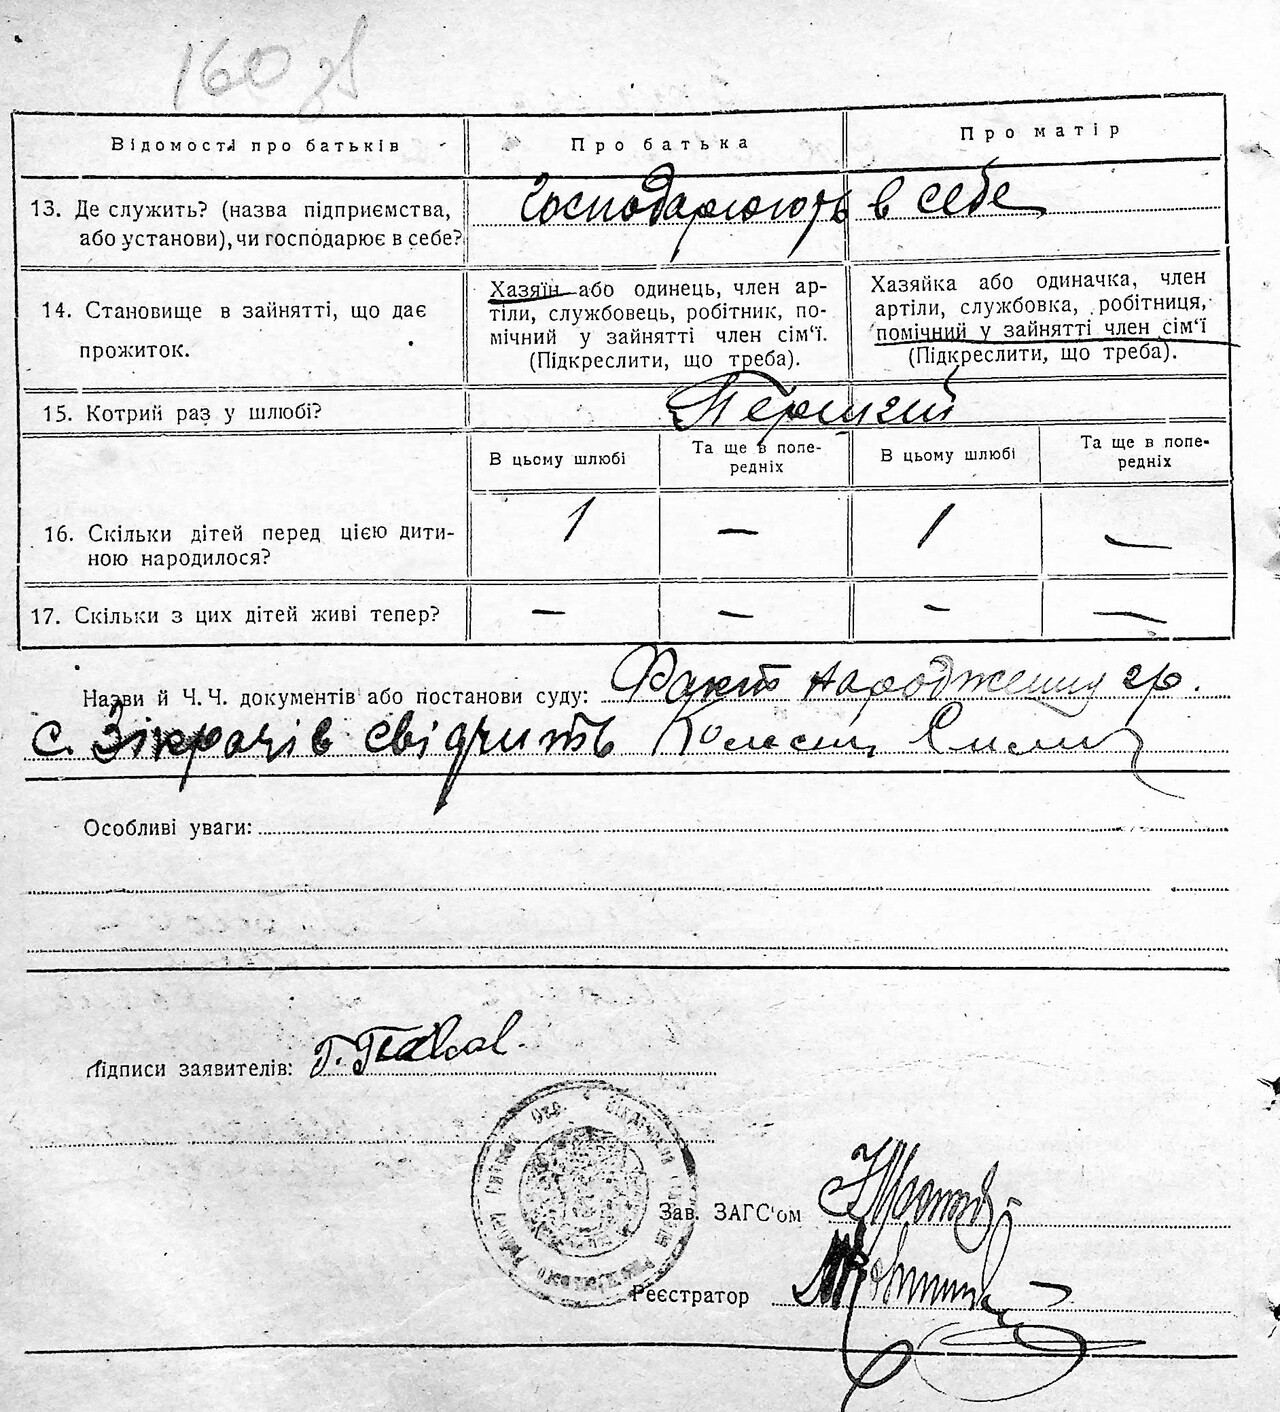 160 зв
Відомості про батьків
Про батька
Про матір
13. Де служить? (назва підприємства, або установи), чи господарює в себе?
Господарюють в себе
14. Становище в зайнятті, що дає прожиток.
Хазяїн або одинець, член ар-
тіли, службовець, робітник, по-
мічний у зайнятті член сім'ї.
(Підкреслити, що треба).
Хазяйка або одиначка, член
артіли, службовка, робітниця,
помічний у зайнятті член сім'ї
(Підкреслити, що треба).
15. Котрий раз у шлюбі?
Перший
В цьому шлюбі
Та ще в попе-
редніх
В цьому шлюбі
Та ще в попе-
редніх
16. Скільки дітей перед цією дити-
ною народилося?
1 — 1 —
17. Скільки з цих дітей живі тепер?
— — — —
Назви й Ч.Ч. документів або постанови суду: Факт народження гр.
с. Зікрачів свідчить
Особливі уваги:
Підписи заявителів:
Зав. ЗАГС'ом
Реєстратор